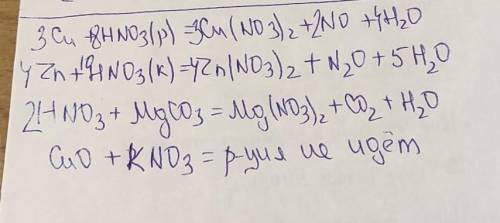 3Cu + 8HNO3(р) = 3Cu(NO3)2 + 2NO + 4H2O
4Zn + 10HNO3(к) = 4Zn(NO3)2 + N2O + 5H2O
2HNO3 + MgCO3 = Mg(NO3)2 + CO2 + H2O
CuO + KNO3 = р-уия не идёт